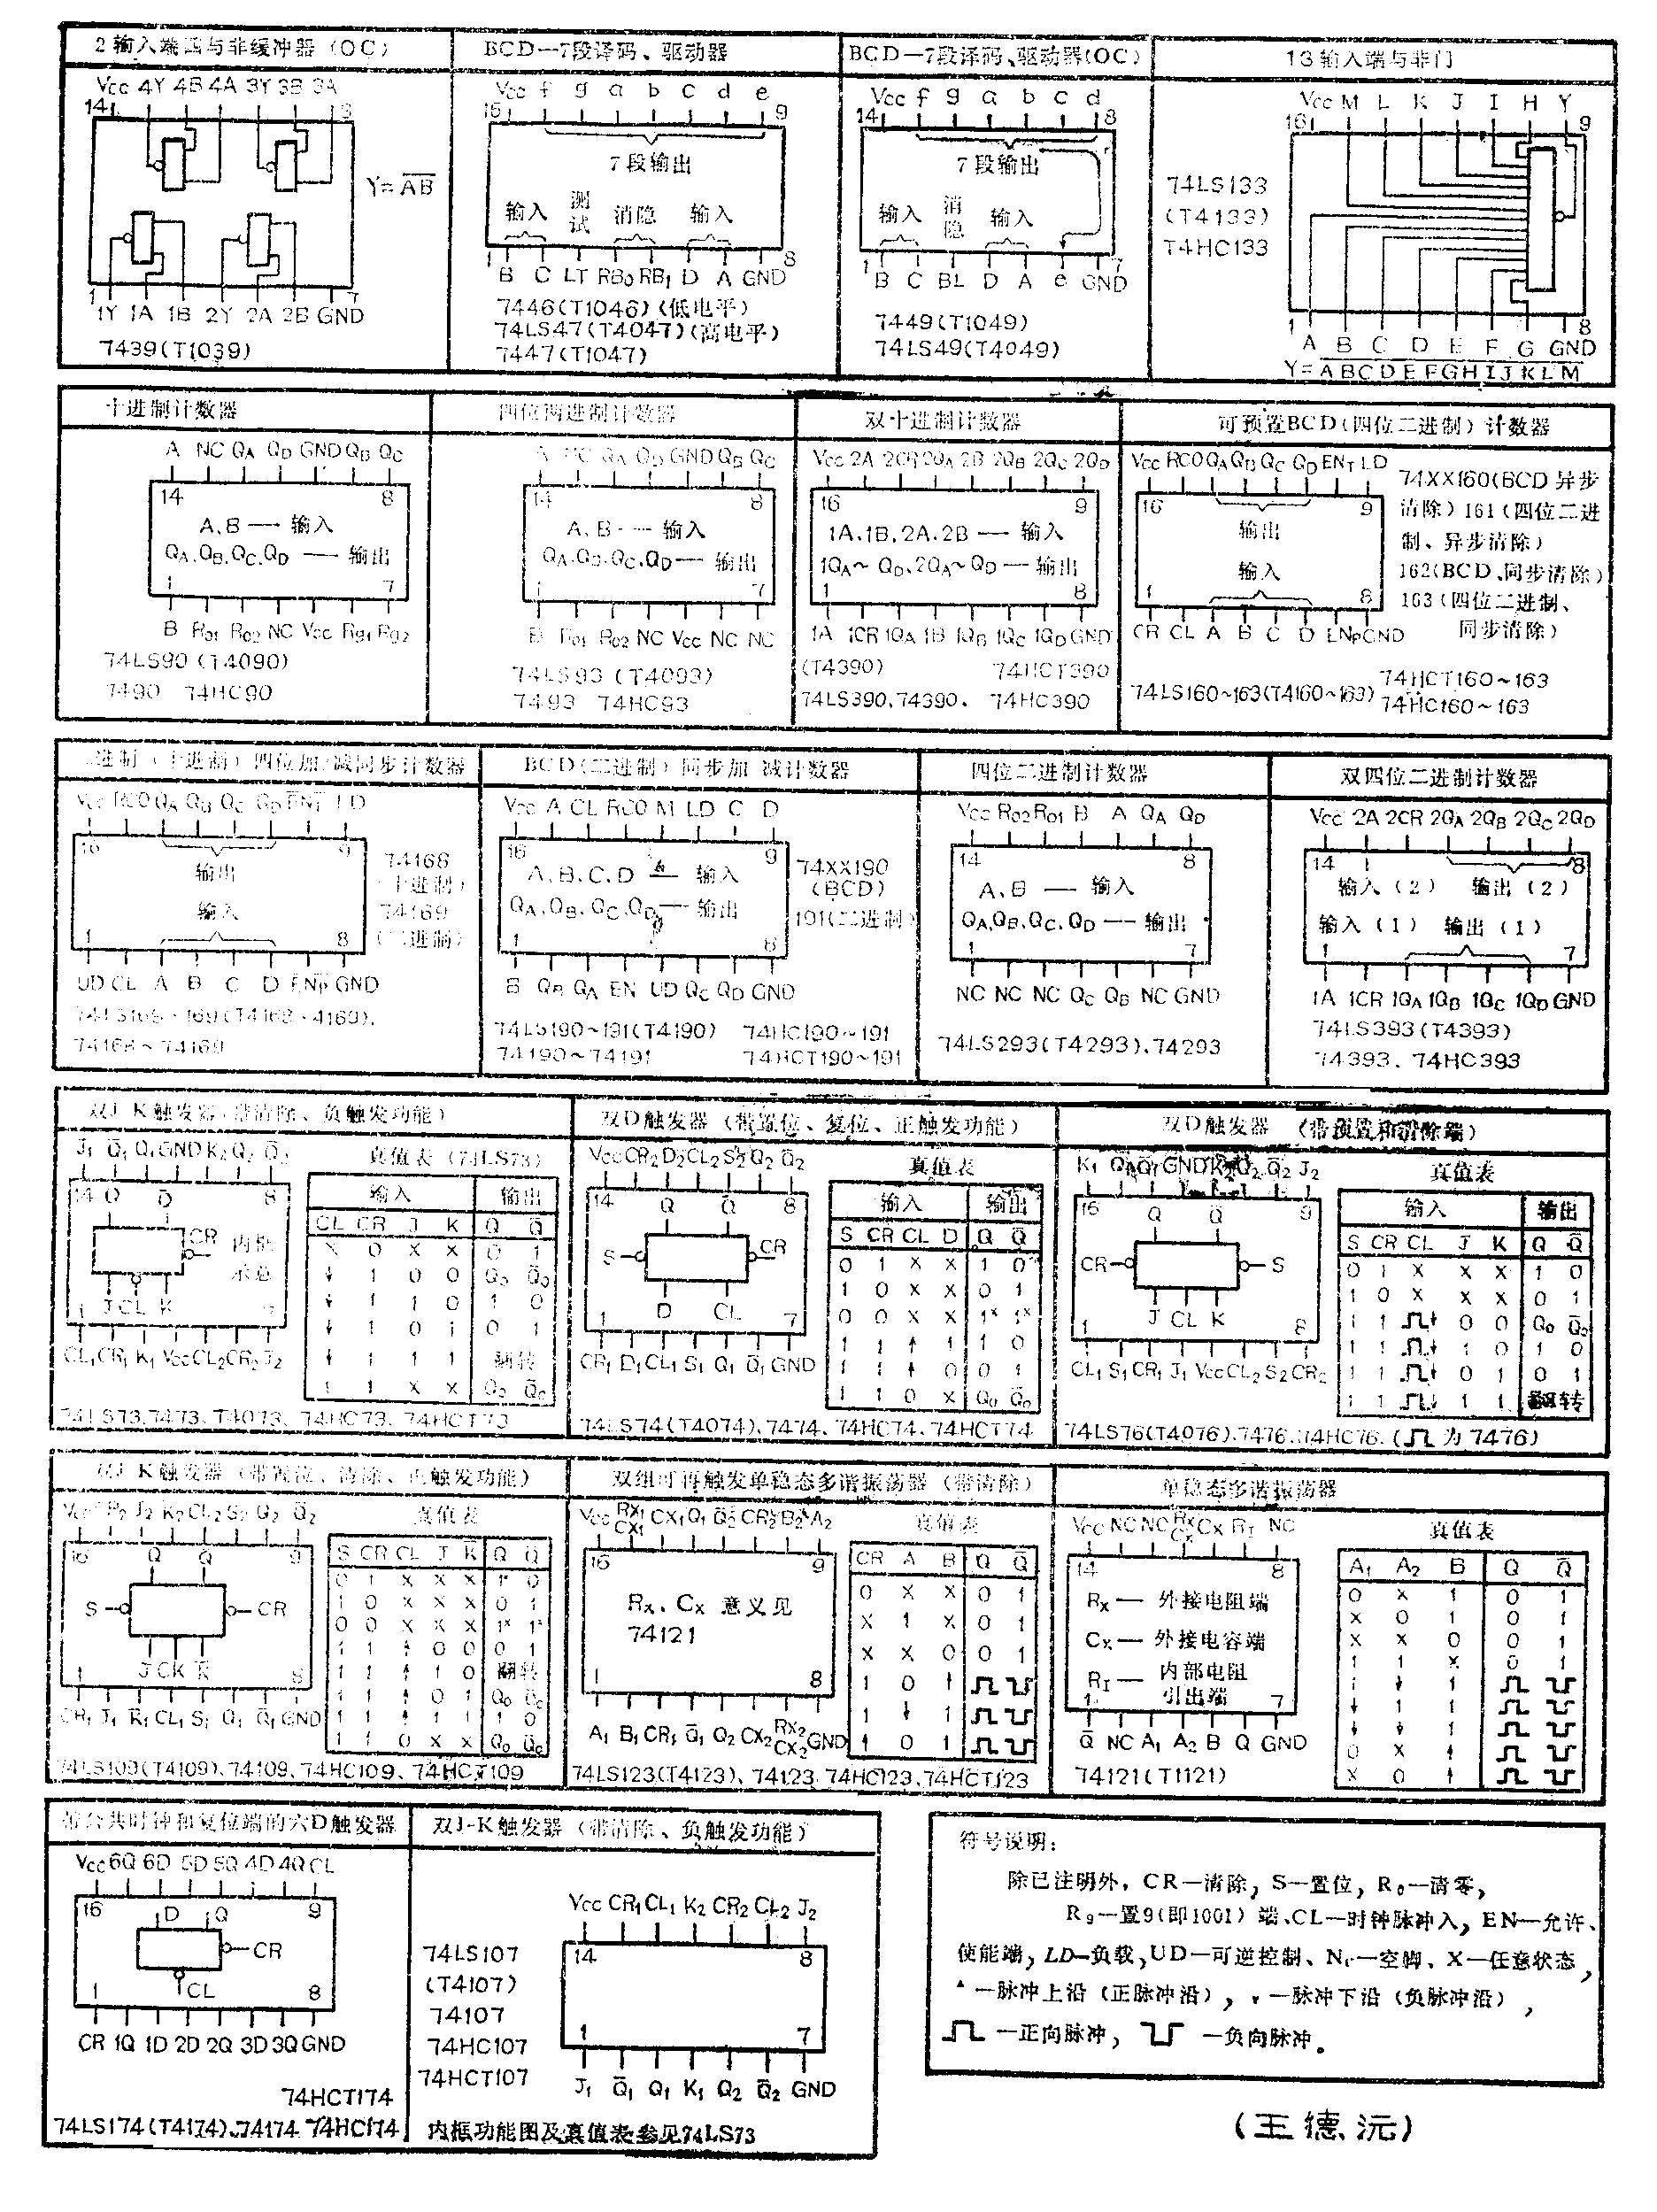 2输入端四与非缓冲器(OC)
Vcc 4Y 4B 4A 3Y 3B 3A
14
Y=A̅B̅
1 7
1Y 1A 1B 2Y 2A 2B GND
7439(T1039)
BCD—7段译码、驱动器
Vcc f g a b c d e
9
7段输出
输入 测试 消隐 输入
1 8
B C LT RB₀ RB₁ D A GND
7446(T1046)(低电平)
74LS47(T4047)(高电平)
7447(T1047)
BCD—7段译码、驱动器(OC)
Vcc f g a b c d
14 8
7段输出
输入 消隐 输入
1 7
B C BL D A e GND
7449(T1049)
74LS49(T4049)
13输入端与非门
Vcc M L K J I H Y
16 9
74LS133
(T4133)
T4HC133
1 8
A B C D E F G GND
Y=A̅B̅C̅D̅E̅F̅G̅H̅I̅J̅K̅L̅M̅
十进制计数器
A NC QA QD GND QB QC
14 8
A、B — 输入
QA、QB、QC、QD — 输出
1 7
B R01 R02 NC Vcc R91 R92
74LS90(T4090)
7490 74HC90
四位两进制计数器
A NC QA QD GND QB QC
14 8
A、B — 输入
QA、QB、QC、QD — 输出
1 7
B R01 R02 NC Vcc NC NC
74LS93(T4093)
7493 74HC93
双十进制计数器
Vcc 2A 2CR 2QA 2B 2QB 2QC 2QD
16 9
1A、1B、2A、2B — 输入
1QA~QD、2QA~QD — 输出
1 8
1A 1CR 1QA 1B 1QB 1QC 1QD GND
(T4390) 74HCT390
74LS390、74390、 74HC390
可预置BCD(四位二进制)计数器
Vcc RCO QA QB QC QD ENT LD
16 9
输出
输入
1 8
CR CL A B C D ENP GND
74XX160(BCD异步
清除)161(四位二进
制、异步清除)
162(BCD、同步清除)
163(四位二进制、
同步清除)
74HCT160~163
74LS160~163(T4160~163) 74HC160~163
二进制(十进制)四位加/减同步计数器
Vcc RCO QA QB QC QD E̅N̅T̅ LD
16 9
输出
输入
1 8
UD CL A B C D E̅N̅P̅ GND
74168
(十进制)
74169
(二进制)
74LS168~169(T4168~4169)、
74168~74169
BCD(二进制)同步加 减计数器
Vcc A CL RCO M LD C D
16 9
A、B、C、D — 输入
QA、QB、QC、QD — 输出
1 8
B QB QA EN UD QC QD GND
74XX190
(BCD)
191(二进制)
74LS190~191(T4190) 74HC190~191
74190~74191 74HCT190~191
四位二进制计数器
Vcc R02 R01 B A QA QD
14 8
A、B — 输入
QA、QB、QC、QD — 输出
1 7
NC NC NC QC QB NC GND
74LS293(T4293)、74293
双四位二进制计数器
Vcc 2A 2CR 2QA 2QB 2QC 2QD
14 8
输入(2) 输出(2)
输入(1) 输出(1)
1 7
1A 1CR 1QA 1QB 1QC 1QD GND
74LS393(T4393)
74393、74HC393
双J-K触发器(带清除、负触发功能)
J₁ Q̅₁ Q₁ GND K₂ Q₂ Q̅₂
14 Q Q̅ 8
CR 内框
示意
J CL K
1 7
CL₁ CR₁ K₁ Vcc CL₂ CR₂ J₂
真值表(74LS73)
输入 输出
CL CR J K Q Q̅
X 0 X X 0 1
↓ 1 0 0 Q₀ Q̅₀
↓ 1 1 0 1 0
↓ 1 0 1 0 1
↓ 1 1 1 翻转
1 1 X X Q₀ Q̅₀
74LS73、7473、T4073、74HC73、74HCT73
双D触发器(带置位、复位、正触发功能)
Vcc CR₂ D₂ CL₂ S₂ Q₂ Q̅₂
14 Q Q̅ 8
S CR
D CL
1 7
CR₁ D₁ CL₁ S₁ Q₁ Q̅₁ GND
真值表
输入 输出
S CR CL D Q Q̅
0 1 X X 1 0
1 0 X X 0 1
0 0 X X 1* 1*
1 1 ↑ 1 1 0
1 1 ↑ 0 0 1
1 1 0 X Q₀ Q̅₀
74LS74(T4074)、7474、74HC74、74HCT74
双D触发器 (带预置和清除端)
K₁ Q₁ Q̅₁ GND K₂ Q₂ Q̅₂ J₂
16 Q Q̅ 9
CR S
J CL K
1 8
CL₁ S₁ CR₁ J₁ Vcc CL₂ S₂ CR₂
真值表
输入 输出
S CR CL J K Q Q̅
0 1 X X X 1 0
1 0 X X X 0 1
1 1 ⎍↓ 0 0 Q₀ Q̅₀
1 1 ⎍↓ 1 0 1 0
1 1 ⎍↓ 0 1 0 1
1 1 ⎍↓ 1 1 翻转
74LS76(T4076)、7476、74HC76、(⎍为7476)
双J-K触发器(带置位、清除、正触发功能)
Vcc CR₂ J₂ K̅₂ CL₂ S₂ Q₂ Q̅₂
16 Q Q̅ 9
S CR
J CK K̅
1 8
CR₁ J₁ K̅₁ CL₁ S₁ Q₁ Q̅₁ GND
真值表
S CR CL J K̅ Q Q̅
0 1 X X X 1 0
1 0 X X X 0 1
0 0 X X X 1* 1*
1 1 ↑ 0 0 0 1
1 1 ↑ 1 0 翻转
1 1 ↑ 0 1 Q₀ Q̅₀
1 1 ↑ 1 1 1 0
1 1 0 X X Q₀ Q̅₀
74LS109(T4109)、74109、74HC109、74HCT109
双组可再触发单稳态多谐振荡器(带清除)
Vcc RX₁CX₁ CX₁ Q₁ Q̅₂ CR₂ B₂ A₂
16 9
Rx、Cx 意义见
74121
1 8
A₁ B₁ CR₁ Q̅₁ Q₂ CX₂ RX₂CX₂ GND
真值表
CR A B Q Q̅
0 X X 0 1
X 1 X 0 1
X X 0 0 1
1 0 ↑ ⎍ ⎎
1 ↓ 1 ⎍ ⎎
↑ 0 1 ⎍ ⎎
74LS123(T4123)、74123、74HC123、74HCT123
单稳态多谐振荡器
Vcc NC NC RxCx Cx RI NC
14 8
Rx — 外接电阻端
Cx — 外接电容端
RI — 内部电阻
引出端
1 7
Q̅ NC A₁ A₂ B Q GND
74121(T1121)
真值表
A₁ A₂ B Q Q̅
0 X 1 0 1
X 0 1 0 1
X X 0 0 1
1 1 X 0 1
1 ↓ 1 ⎍ ⎎
↓ 1 1 ⎍ ⎎
↓ ↓ 1 ⎍ ⎎
0 X ↑ ⎍ ⎎
X 0 ↑ ⎍ ⎎
带公共时钟和复位端的六D触发器
Vcc 6Q 6D 5D 5Q 4D 4Q CL
16 D Q 9
CR
CL
1 8
CR 1Q 1D 2D 2Q 3D 3Q GND
74HCT174
74LS174(T4174)、74174、74HC174
双J-K触发器(带清除、负触发功能)
Vcc CR₁ CL₁ K₂ CR₂ CL₂ J₂
14 8
74LS107
(T4107)
74107
74HC107
74HCT107
1 7
J₁ Q̅₁ Q₁ K₁ Q₂ Q̅₂ GND
内框功能图及真值表参见74LS73
符号说明:
除已注明外,CR—清除,S—置位,R₀—清零,
R₉—置9(即1001)端、CL—时钟脉冲入,EN—允许、
使能端,LD—负载,UD—可逆控制、NC—空脚、X—任意状态,
▲—脉冲上沿(正脉冲沿),▼—脉冲下沿(负脉冲沿),
⎍—正向脉冲,⎎—负向脉冲。
(王德沅)